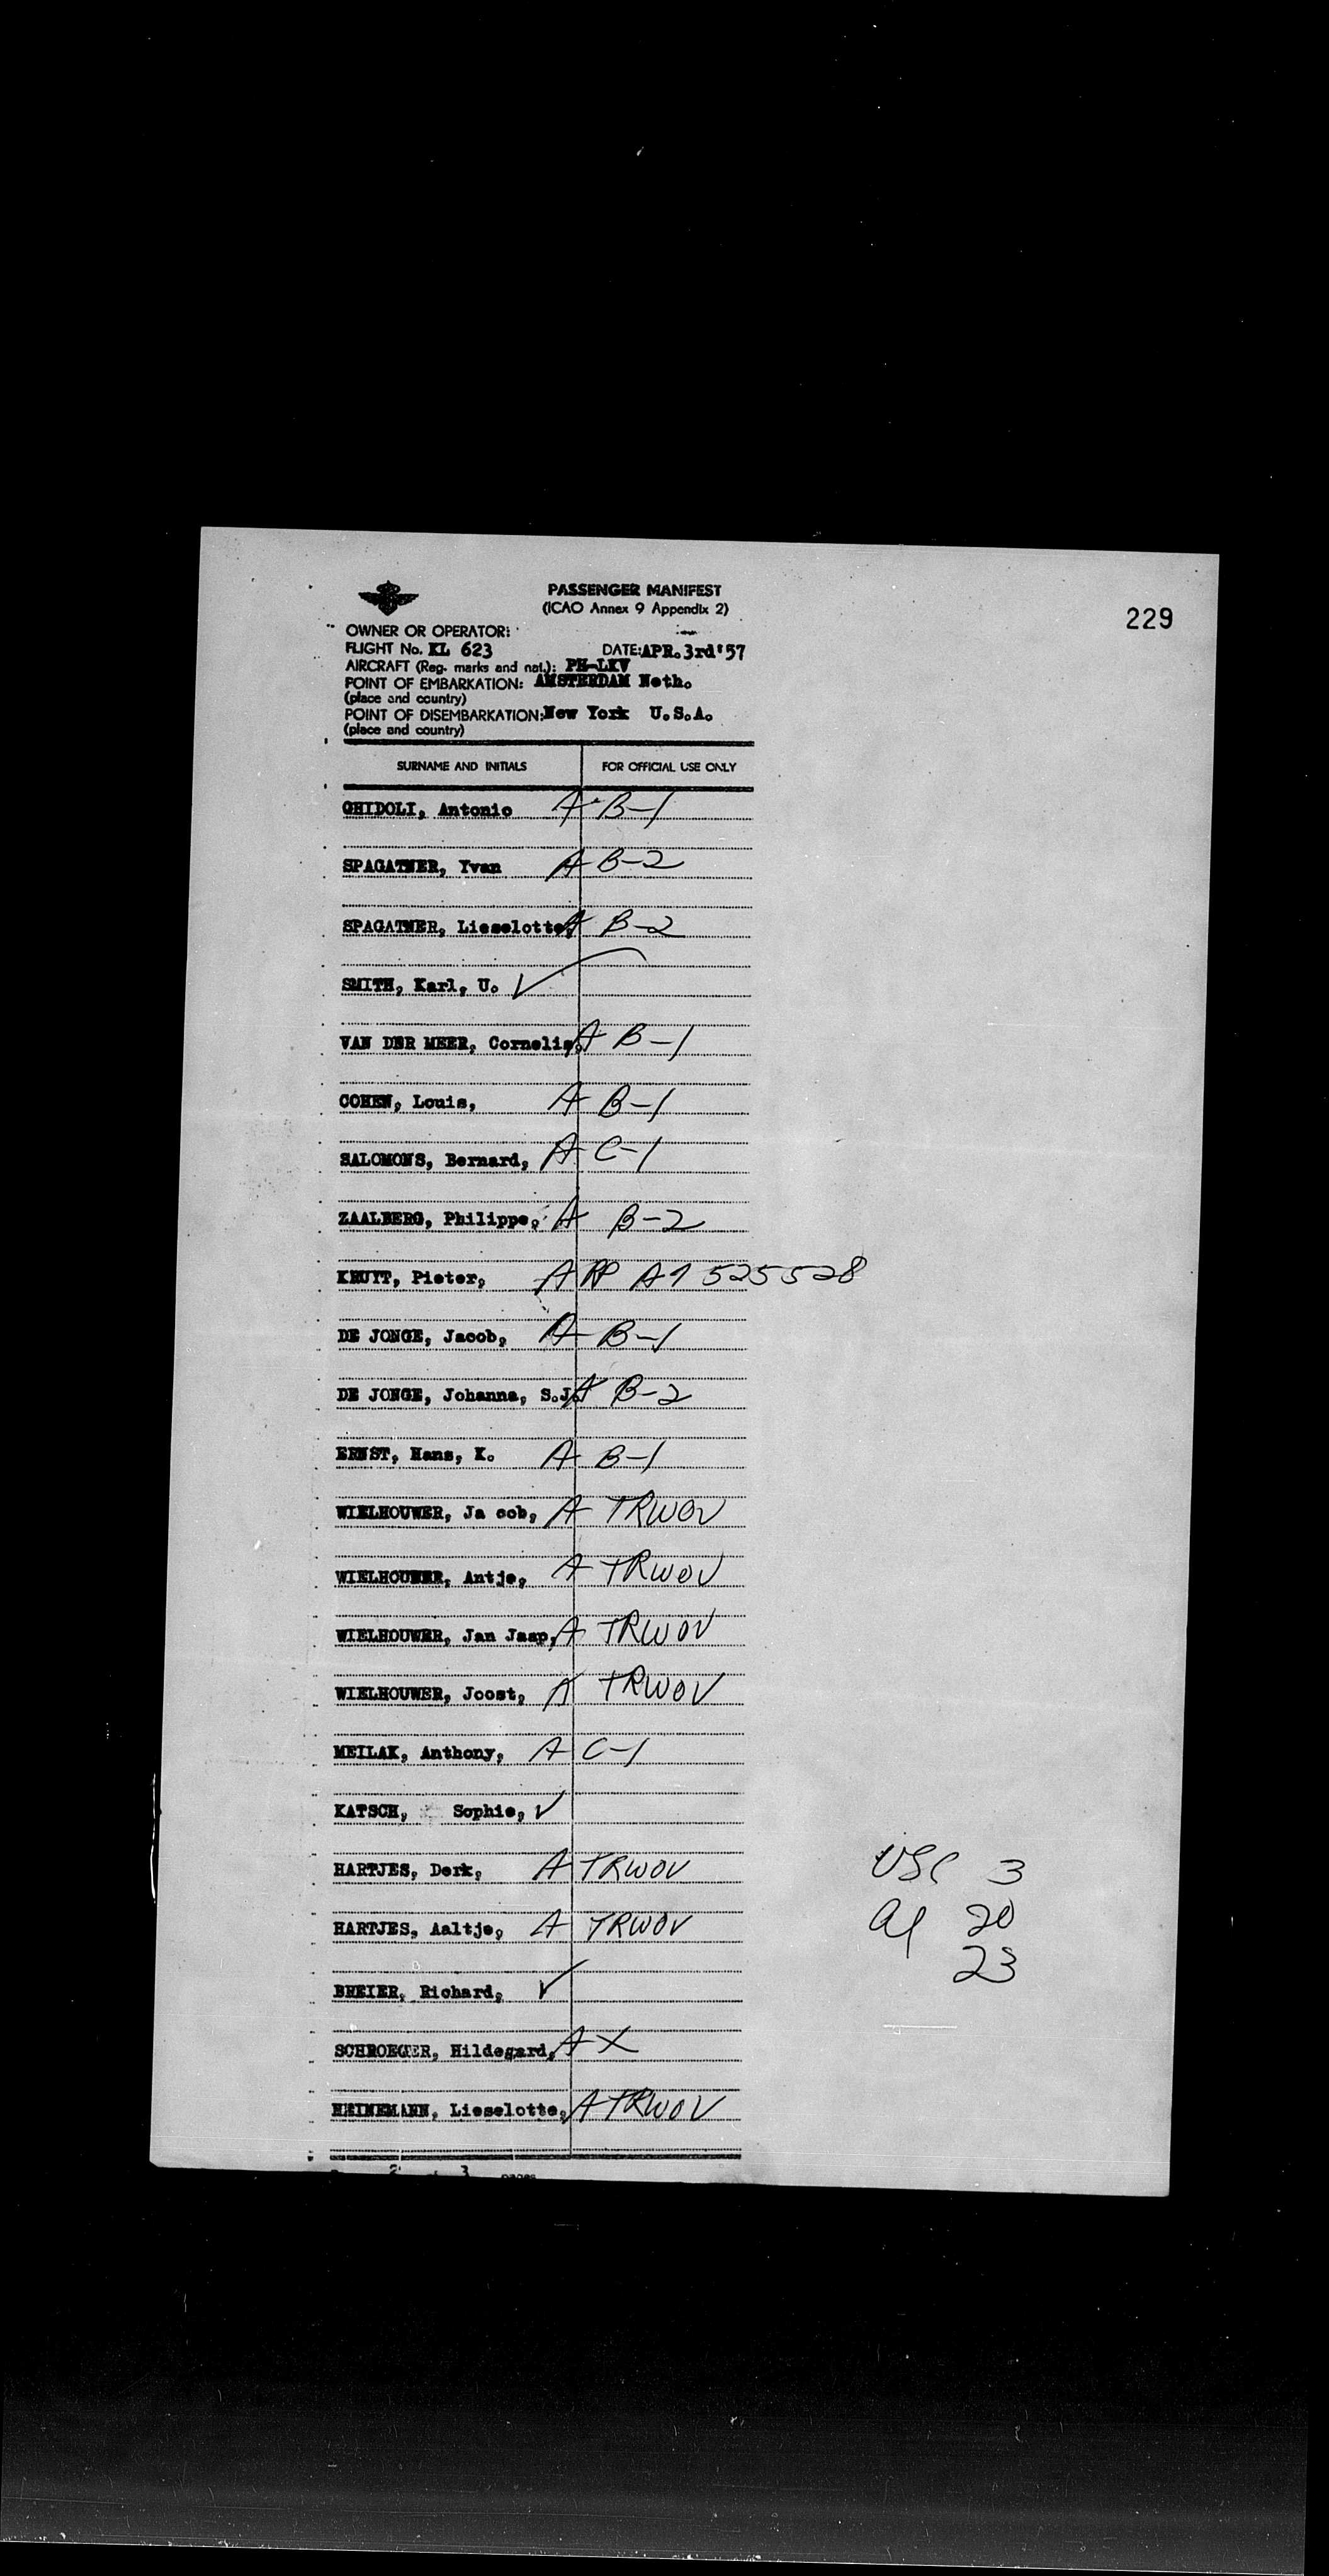 PASSENGER MANIFEST
(ICAO Annex 9 Appendix 2)
229
OWNER OR OPERATOR:
FLIGHT No. KL 623 DATE: APR. 3rd'57
AIRCRAFT (Reg. marks and nat.): PH-LKV
POINT OF EMBARKATION: AMSTERDAM Neth.
(place and country)
POINT OF DISEMBARKATION: New York U.S.A.
(place and country)
SURNAME AND INITIALS FOR OFFICIAL USE ONLY
GHIDOLI, Antonio A B-1
SPAGATNER, Yvan A B-2
SPAGATNER, Lieselotte A B-2
SMITH, Karl, U. ✓
VAN DER MEER, Cornelis, A B-1
COHEN, Louis, A B-1
SALOMONS, Bernard, A C-1
ZAALBERG, Philippe, A B-2
KRUYT, Pieter, A PP A7 525528
DE JONGE, Jacob, A B-1
DE JONGE, Johanna, S.J. A B-2
ERNST, Hans, K. A B-1
WIELHOUWER, Ja cob, A TRWOV
WIELHOUWER, Antje, A TRWOV
WIELHOUWER, Jan Jaap, A TRWOV
WIELHOUWER, Joost, A TRWOV
MEILAK, Anthony, A C-1
KATSCH, Sophie, ✓
HARTJES, Derk, A TRWOV
HARTJES, Aaltje, A TRWOV
BREIER, Richard, ✓
SCHROEGER, Hildegard, A X
HEINEMANN, Lieselotte, A TRWOV
USC 3
al 20
23
2 3 pages